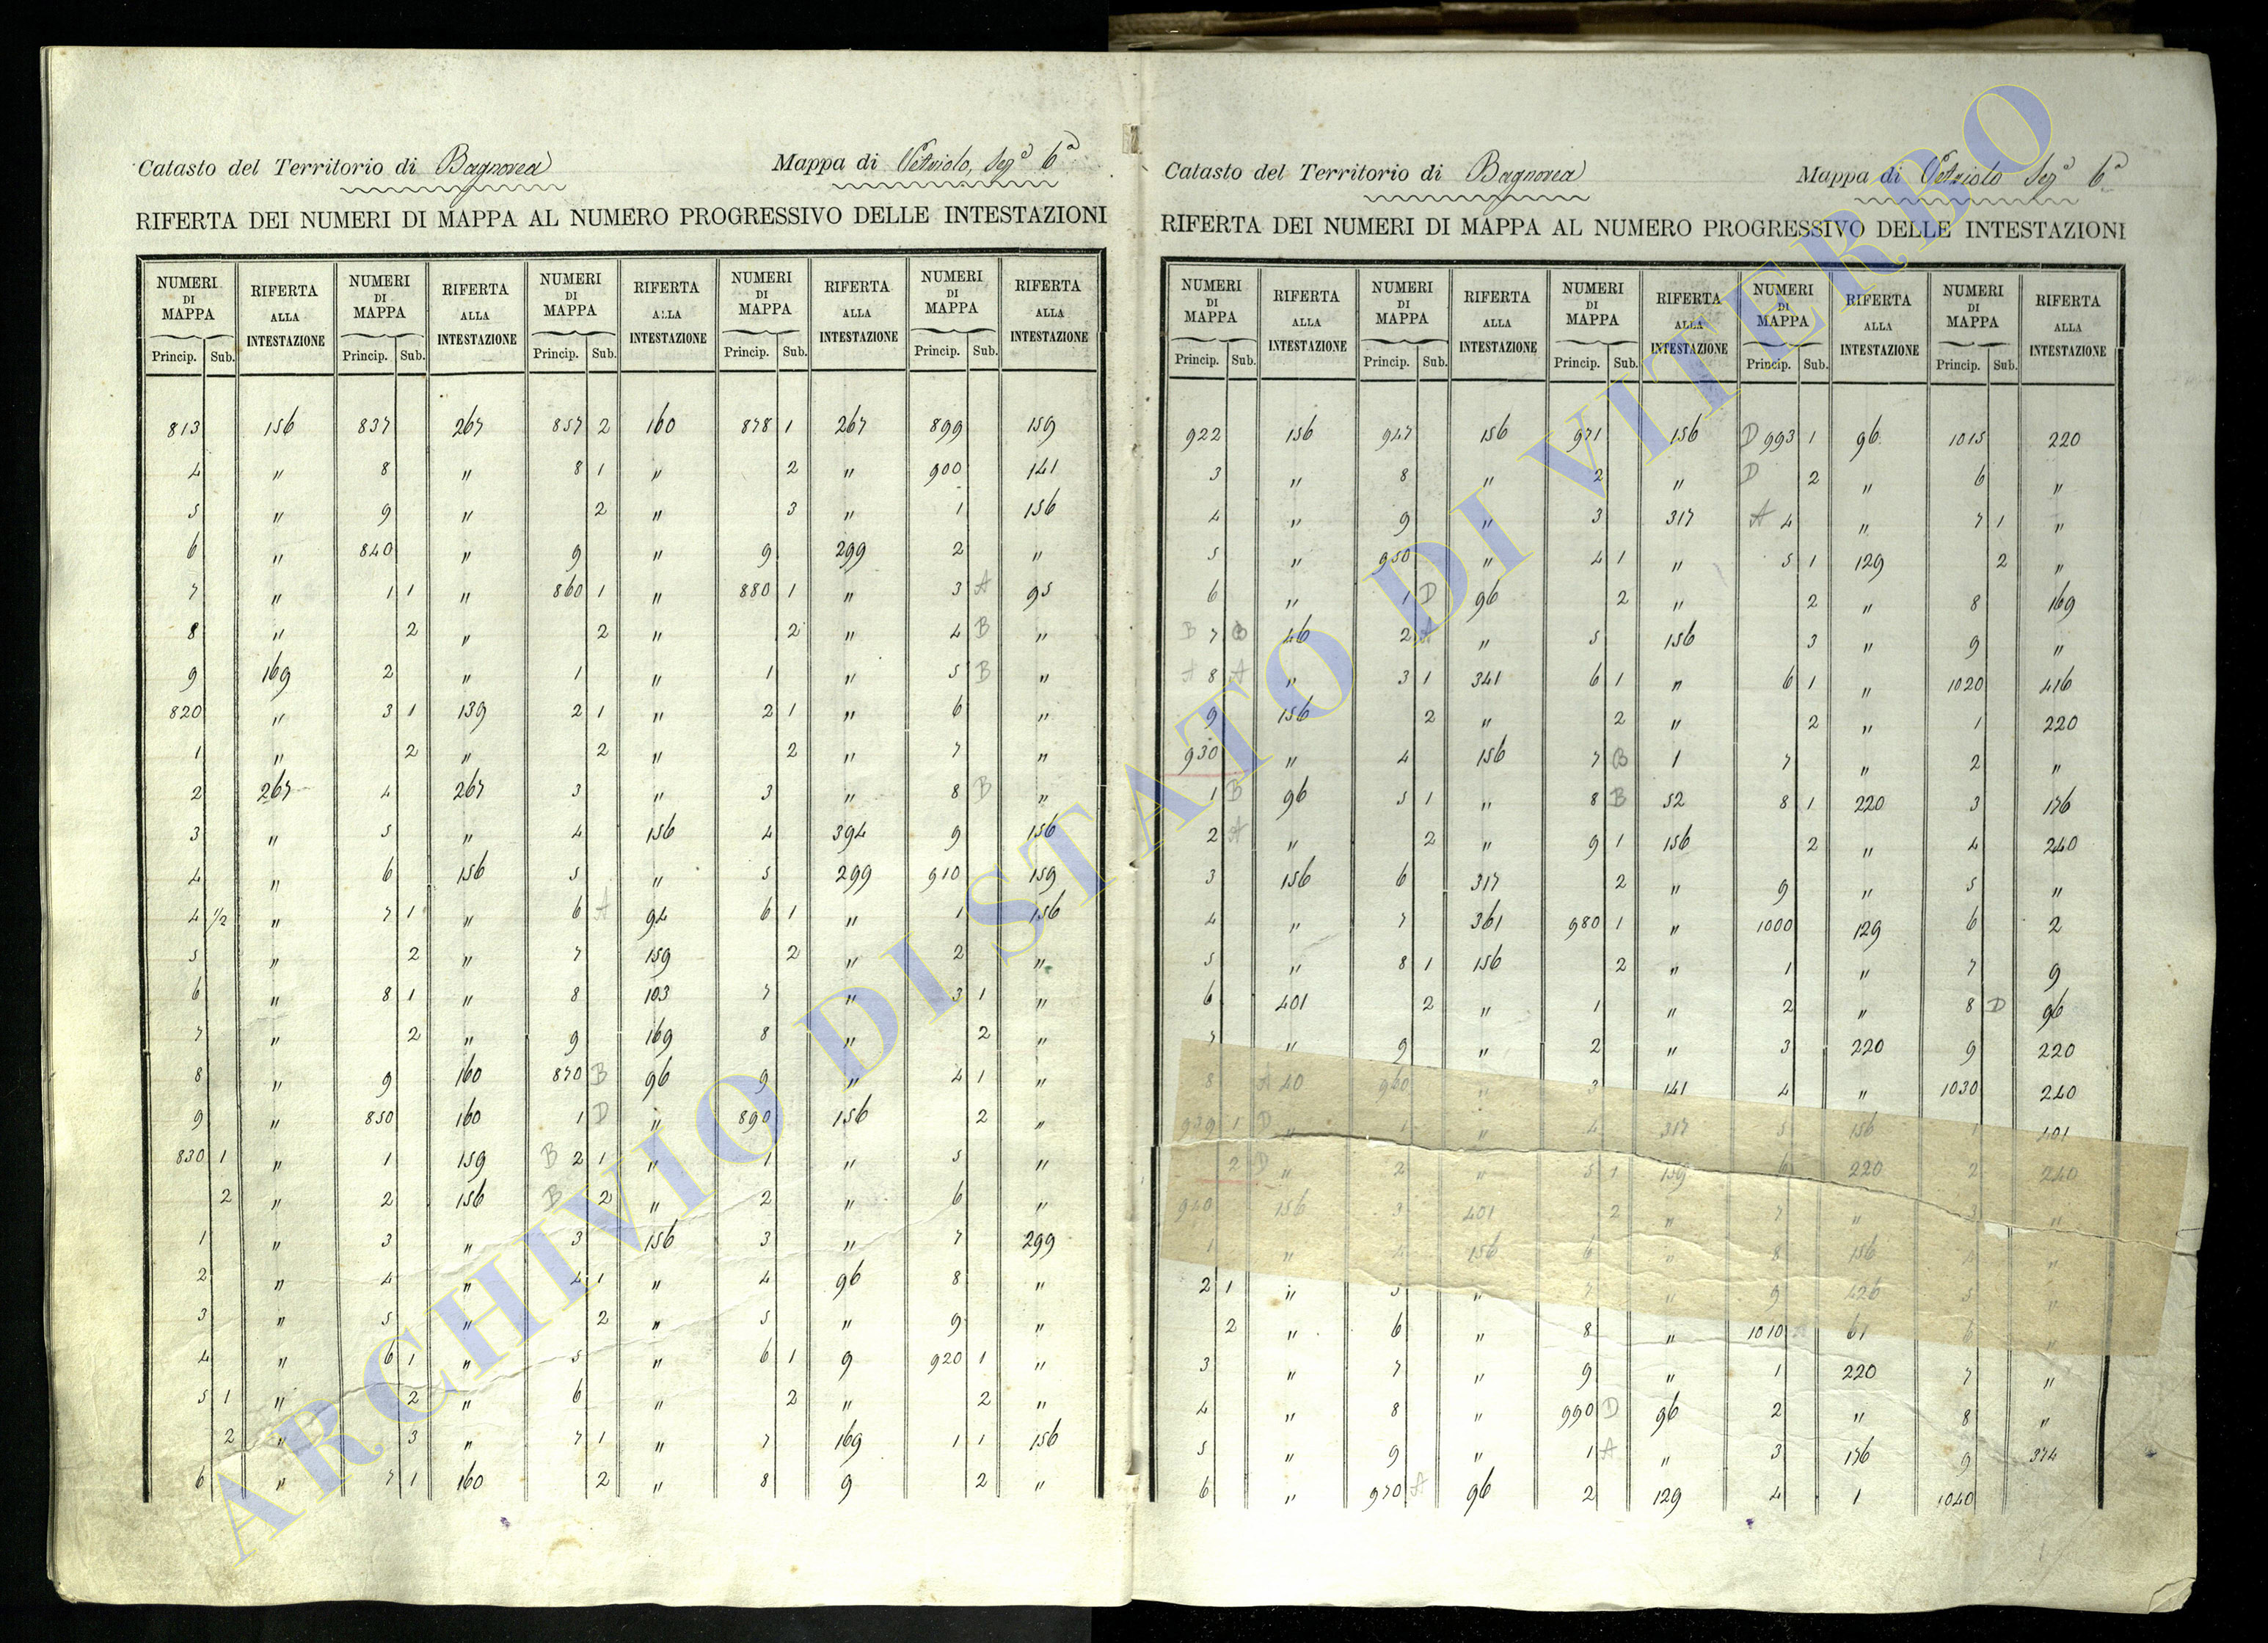 Catasto del Territorio di Bagnorea Mappa di Vetriolo, Sez.e 6a
RIFERTA DEI NUMERI DI MAPPA AL NUMERO PROGRESSIVO DELLE INTESTAZIONI
NUMERI DI MAPPA RIFERTA ALLA INTESTAZIONE NUMERI DI MAPPA RIFERTA ALLA INTESTAZIONE NUMERI DI MAPPA RIFERTA ALLA INTESTAZIONE NUMERI DI MAPPA RIFERTA ALLA INTESTAZIONE NUMERI DI MAPPA RIFERTA ALLA INTESTAZIONE
Princip. Sub. Princip. Sub. Princip. Sub. Princip. Sub. Princip. Sub.
813 156 837 267 857 2 160 878 1 267 899 159
4 " 8 " 8 1 " 2 " 900 141
5 " 9 " 2 " 3 " 1 156
6 " 840 " 9 " 9 299 2 "
7 " 1 1 " 860 1 " 880 1 " 3 A 95
8 " 2 " 2 " 2 " 4 B "
9 169 2 " 1 " 1 " 5 B "
820 " 3 1 139 2 1 " 2 1 " 6 "
1 " 2 " 2 " 2 " 7 "
2 267 4 267 3 " 3 " 8 B "
3 " 5 " 4 156 4 394 9 156
4 " 6 156 5 " 5 299 910 159
4 1/2 " 7 1 " 6 A 94 6 1 " 1 156
5 " 2 " 7 159 2 " 2 "
6 " 8 1 " 8 103 7 " 3 1 "
7 " 2 " 9 169 8 " 2 "
8 " 9 160 870 B 96 9 " 4 1 "
9 " 850 160 1 D " 890 156 2 "
830 1 " 1 159 B 2 1 " 1 " 5 "
2 " 2 156 B 2 " 2 " 6 "
1 " 3 " 3 156 3 " 7 299
2 " 4 " 4 1 " 4 96 8 "
3 " 5 " 2 " 5 " 9 "
4 " 6 1 " 5 " 6 1 9 920 1 "
5 1 " 2 " 6 " 2 " 2 "
2 " 3 " 7 1 " 7 169 1 1 156
6 " 7 1 160 2 " 8 9 2 "
Catasto del Territorio di Bagnorea Mappa di Vetriolo Sez.e 6a
RIFERTA DEI NUMERI DI MAPPA AL NUMERO PROGRESSIVO DELLE INTESTAZIONI
NUMERI DI MAPPA RIFERTA ALLA INTESTAZIONE NUMERI DI MAPPA RIFERTA ALLA INTESTAZIONE NUMERI DI MAPPA RIFERTA ALLA INTESTAZIONE NUMERI DI MAPPA RIFERTA ALLA INTESTAZIONE NUMERI DI MAPPA RIFERTA ALLA INTESTAZIONE
Princip. Sub. Princip. Sub. Princip. Sub. Princip. Sub. Princip. Sub.
922 156 947 156 971 156 D 993 1 96 1015 220
3 " 8 " 2 " D 2 " 6 "
4 " 9 " 3 317 A 4 " 7 1 "
5 " 950 " 4 1 " 5 1 129 2 "
6 " 1 D 96 2 " 2 " 8 169
B 7 B 46 2 A " 5 156 3 " 9 "
A 8 A " 3 1 341 6 1 " 6 1 " 1020 416
9 156 2 " 2 " 2 " 1 220
930 " 4 156 7 B 1 7 " 2 "
1 B 96 5 1 " 8 B 52 8 1 220 3 176
2 A " 2 " 9 1 156 2 " 4 240
3 156 6 317 2 " 9 " 5 "
4 " 7 361 980 1 " 1000 129 6 2
5 " 8 1 156 2 " 1 " 7 9
6 401 2 " 1 " 2 " 8 D 96
7 " 9 " 2 " 3 220 9 220
8 A 40 960 " 3 141 4 " 1030 240
939 1 D " 1 " 4 317 5 156 1 401
2 D " 2 " 5 1 159 6 220 2 240
940 156 3 401 2 " 7 " 3 "
1 " 4 156 6 " 8 156 4 "
2 1 " 5 " 7 " 9 426 5 "
2 " 6 " 8 " 1010 61 6 "
3 " 7 " 9 " 1 220 7 "
4 " 8 " 990 D 96 2 " 8 "
5 " 9 " 1 A " 3 176 9 374
6 " 970 A 96 2 129 4 1 1040
ARCHIVIO DI STATO DI VITERBO